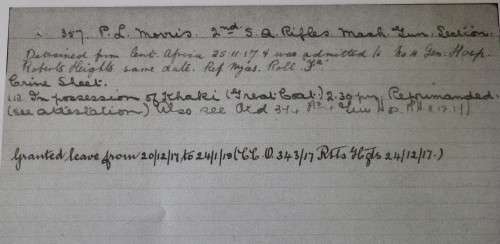 387. P. L. Morris. 2nd S. A. Rifles. Mach. Gun. Section.
Detrained from Cent. Africa 25.11.17 & was admitted to No 4 Gen. Hosp.
Roberts Heights same date. Ref Nyas. Roll
Crime Sheet.
In possession of Khaki (Great Coat) 2.30 pm Reprimanded.
(see attestation) Also see Ord
Granted leave from 20/12/17 to 24/1/18 (C.C.O. 343/17 Rbts Hgts 24/12/17.)